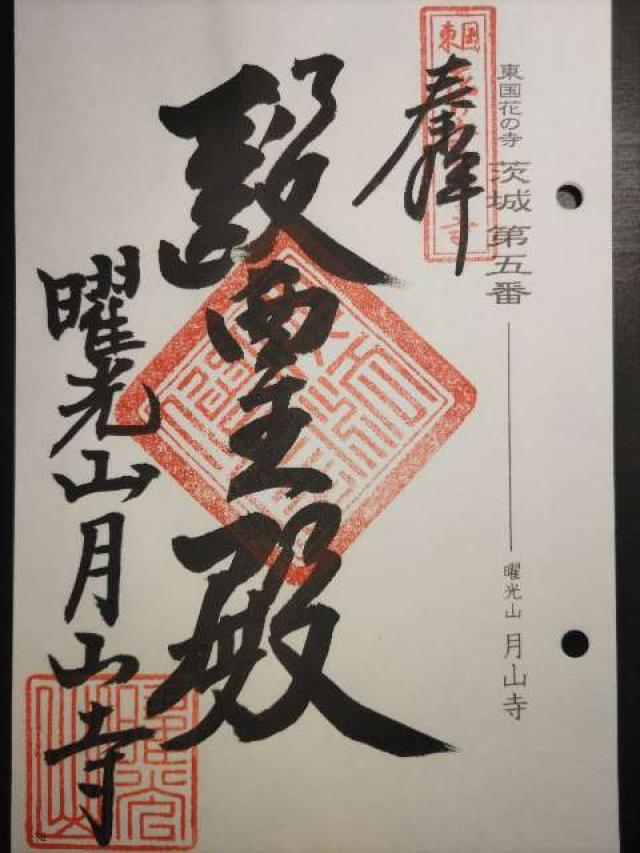 東国花の寺 茨城 第五番 曜光山 月山寺
東国
奉拝
醫王殿
曜光山月山寺